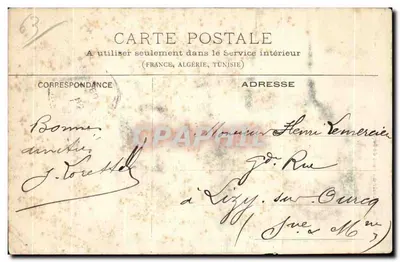 63
CARTE POSTALE
A utiliser seulement dans le Service intérieur
(FRANCE, ALGÉRIE, TUNISIE)
CORRESPONDANCE
ADRESSE
Bonnes
amitiés
Monsieur Henri Lemercier
Gde Rue
à Lizy sur Ourcq
(Sne & Mne)
CPAPHIL.COM